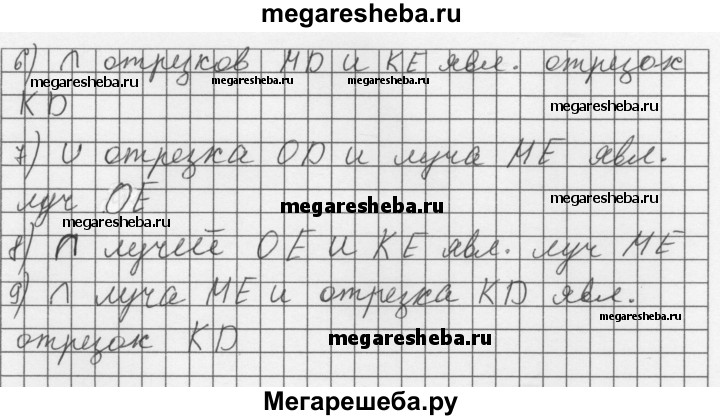 megaresheba.ru
6) ∩ отрезков MD и KE явл. отрезок
megaresheba.ru megaresheba.ru megaresheba.ru
KD megaresheba.ru
7) ∪ отрезка OD и луча ME явл.
луч OE megaresheba.ru megaresheba.ru
megaresheba.ru
8) ∩ лучей OE и KE явл. луч ME
9) ∩ луча ME и отрезка KD явл.
megaresheba.ru
отрезок KD megaresheba.ru
Мегарешеба.ру